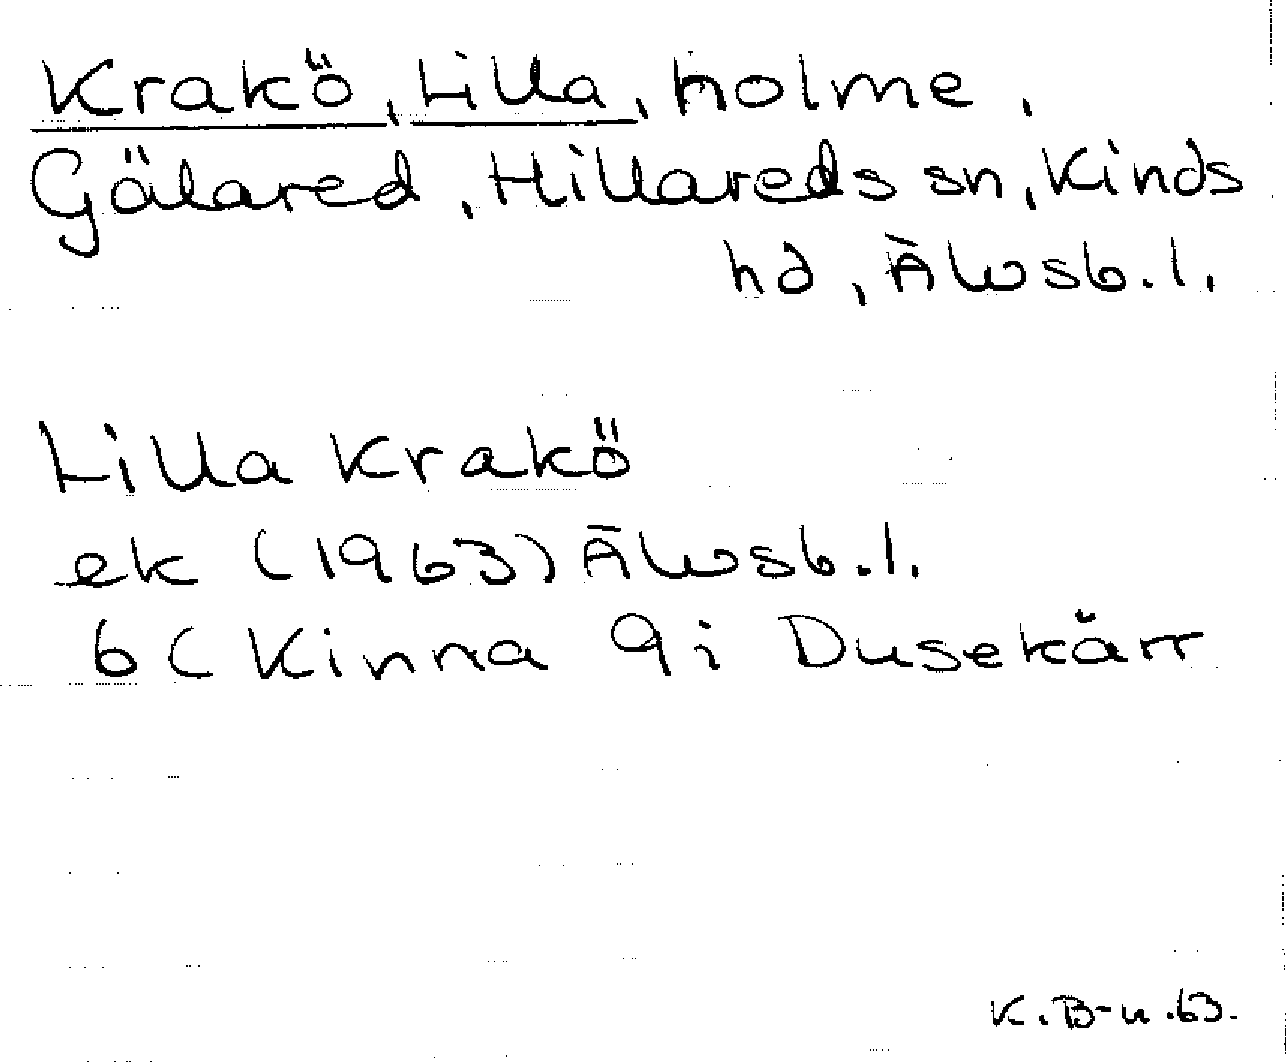 Krakö, Lilla, holme,
Gälared, Hillareds sn, Kinds
hd, Älvsb.l.
Lilla Krakö
ek (1963) Älvsb.l.
6C Kinna 9i Dusekärr
K.B-n.63.